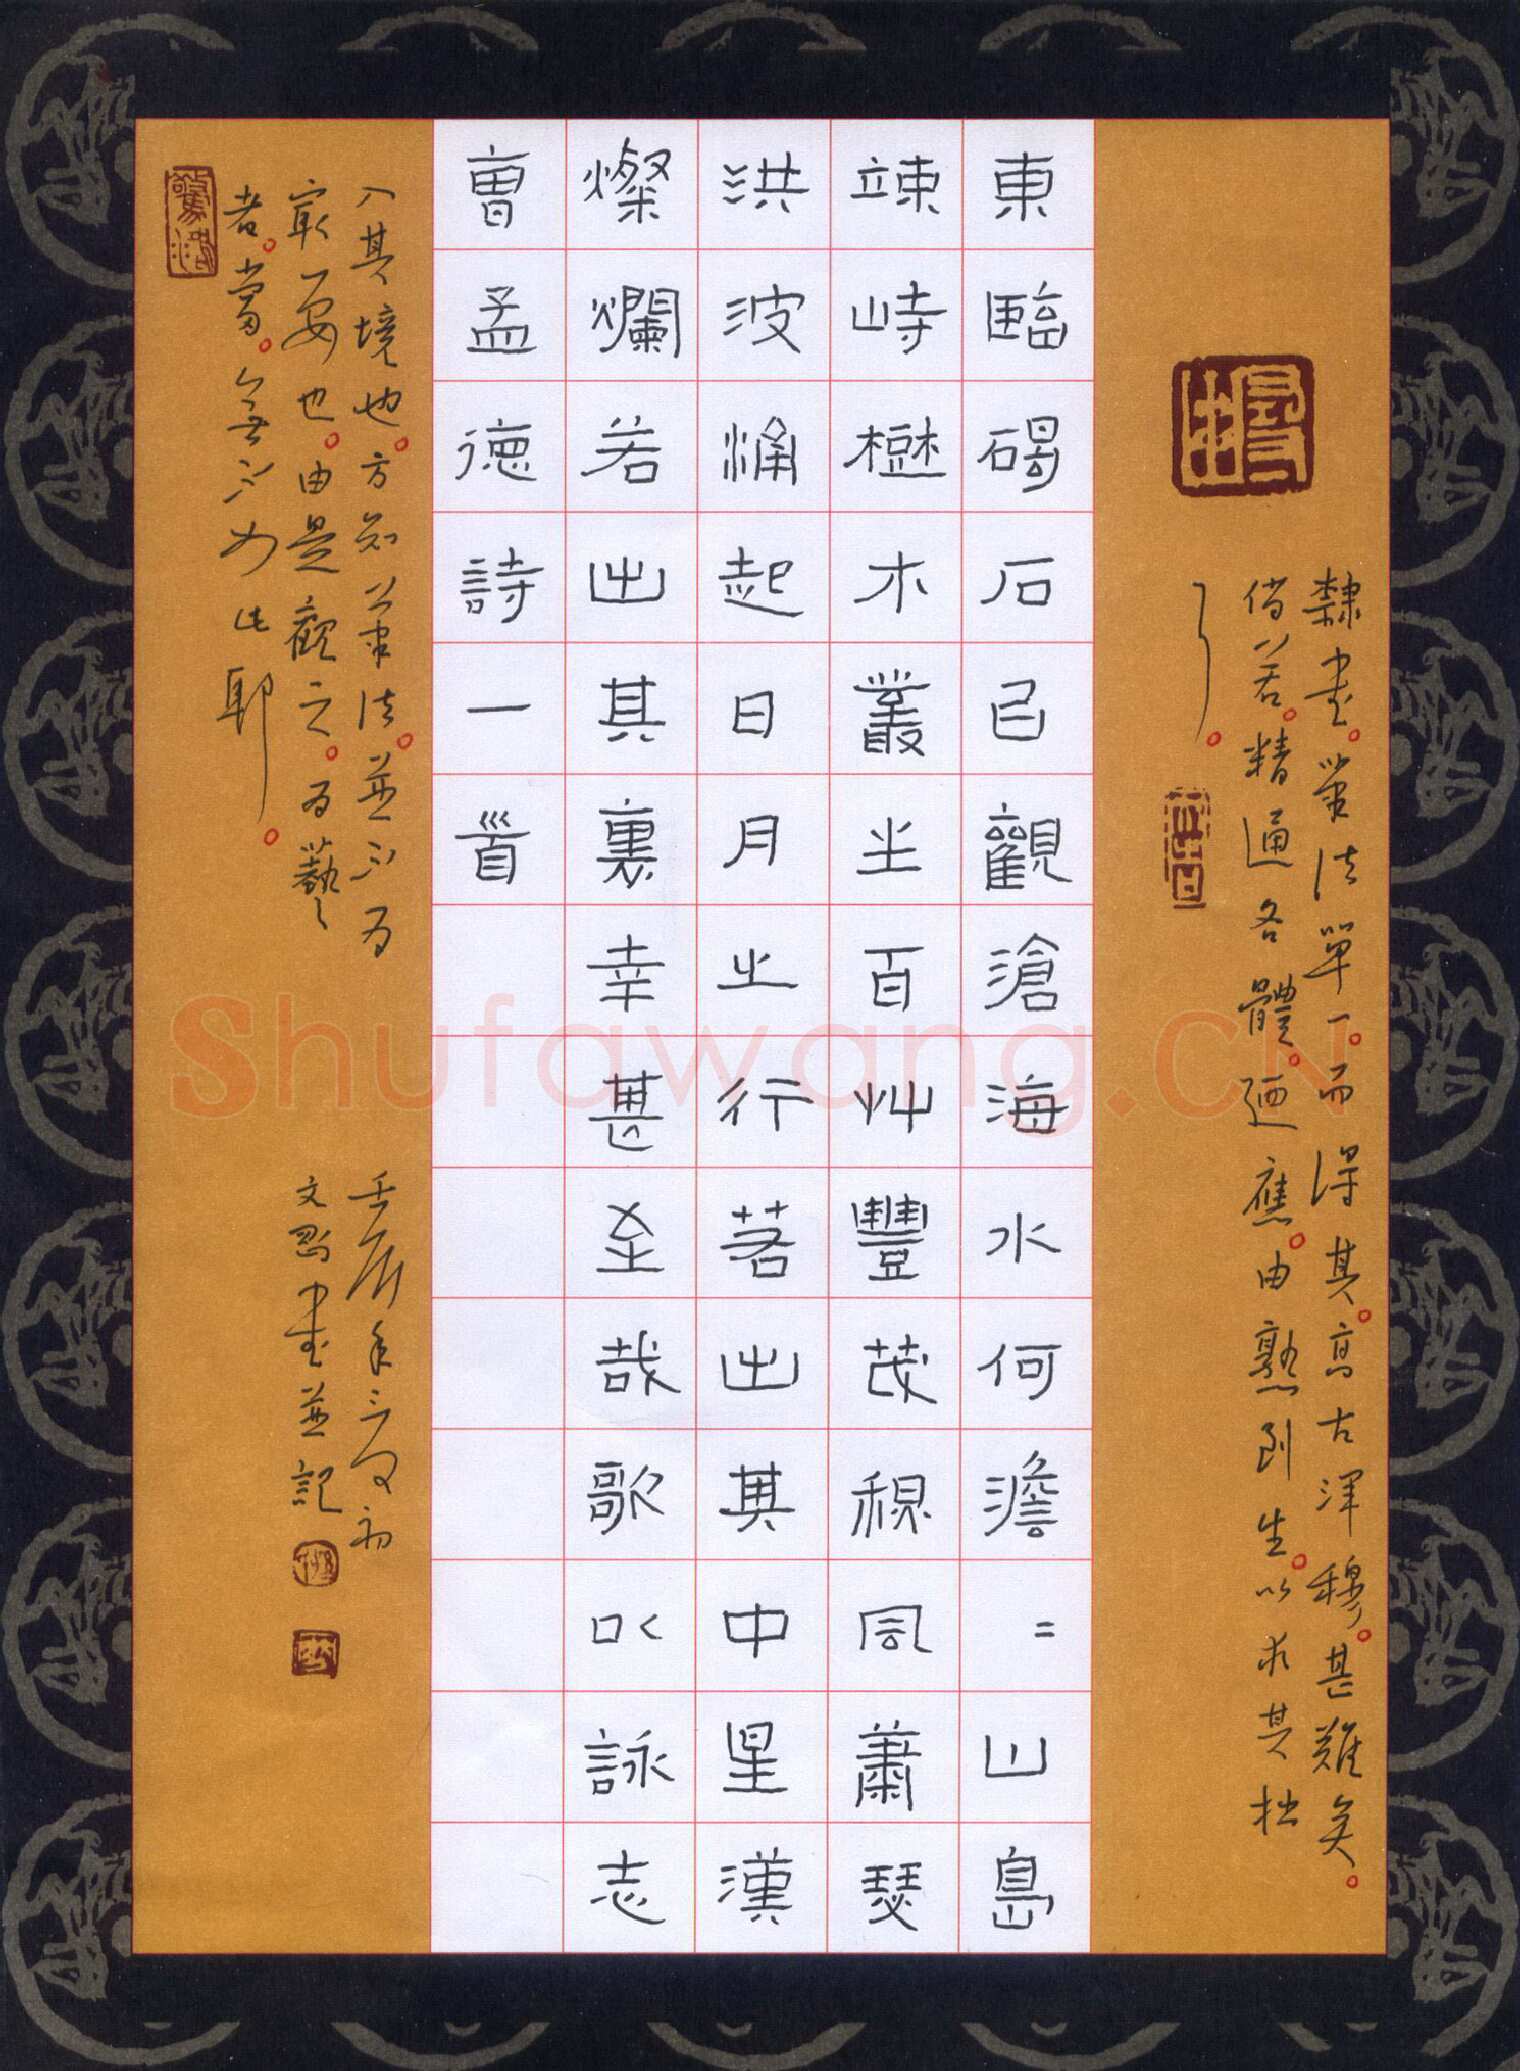 隸書。筆法單一。而得其。高古渾穆。甚難矣。
倘若。精通各體。廼應。由熟到生。以求其拙
東臨碣石㠯觀滄海水何澹=山島
竦峙樹木叢生百艸豐茂秋風蕭瑟
洪波涌起日月之行若出其中星漢
燦爛若出其裏幸甚至哉歌以詠志
曹孟德詩一首
入其境也。方知筆法。並不为
最要也。由是觀之。为藝
者。當。無不如此耶。
壬辰年之夏初
文忍書並記
Shufawang.CN